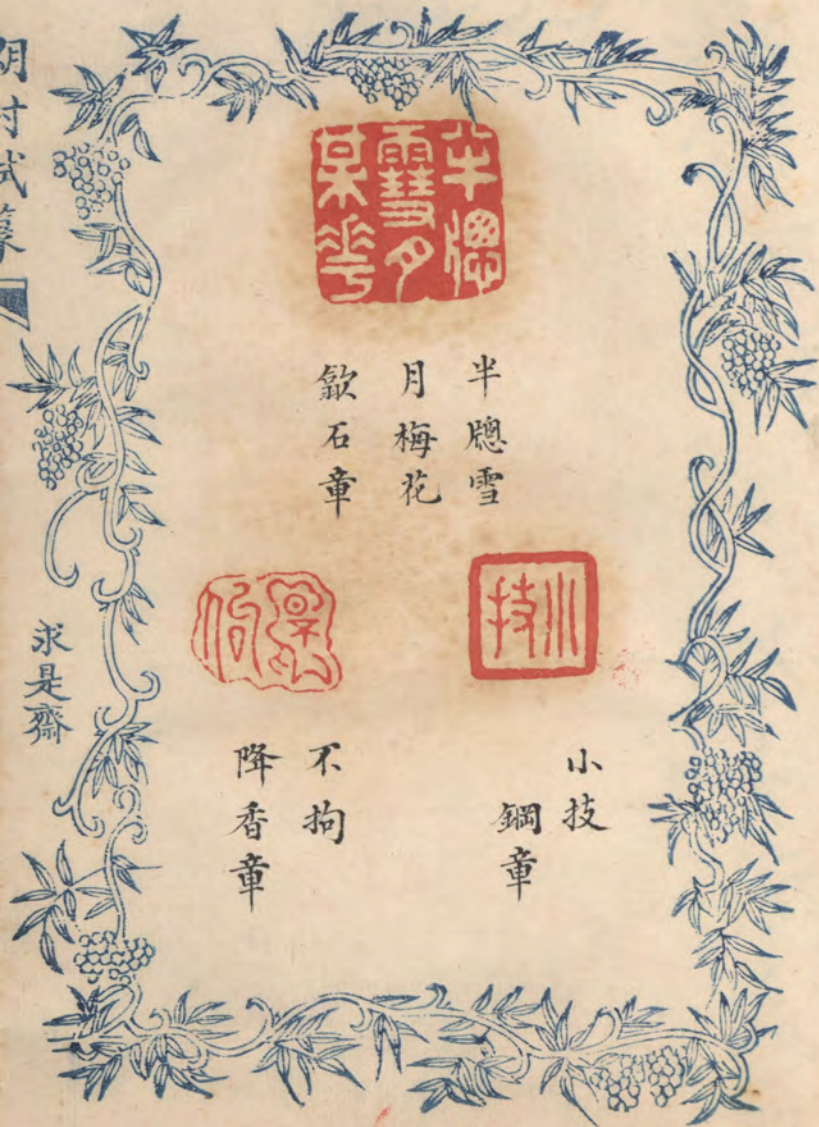 半牕雪月某花
半牕雪
月梅花
歙石章
小技
小技
鋼章
不拘
不拘
降香章
求是齋